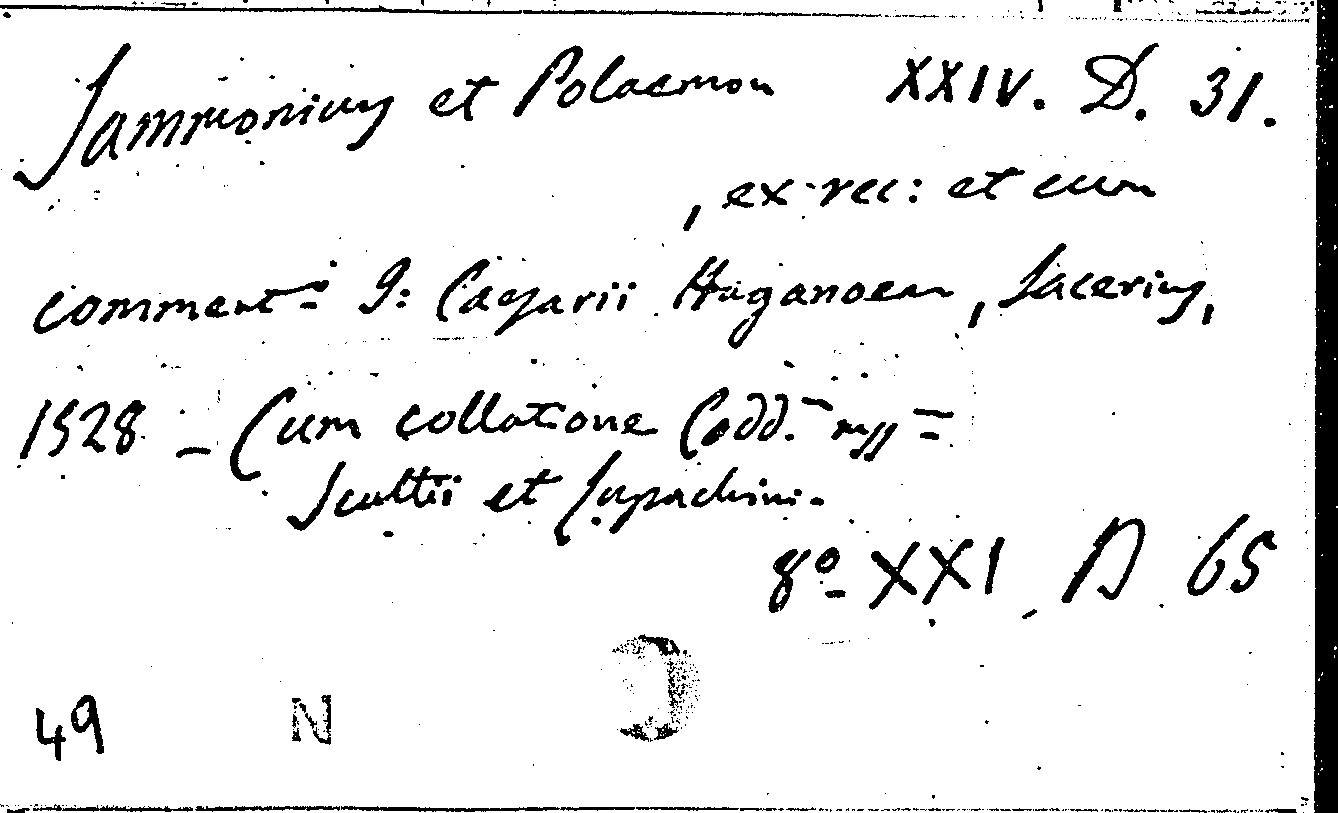 Sammonicus et Polaemon XXIV. D. 31.
, ex rec: et cum
comment= J: Caesarii Haganoeae, Secerius,
1528 – Cum collatione Codd. mss=
Scultii et
8º XXI D 65
49 N